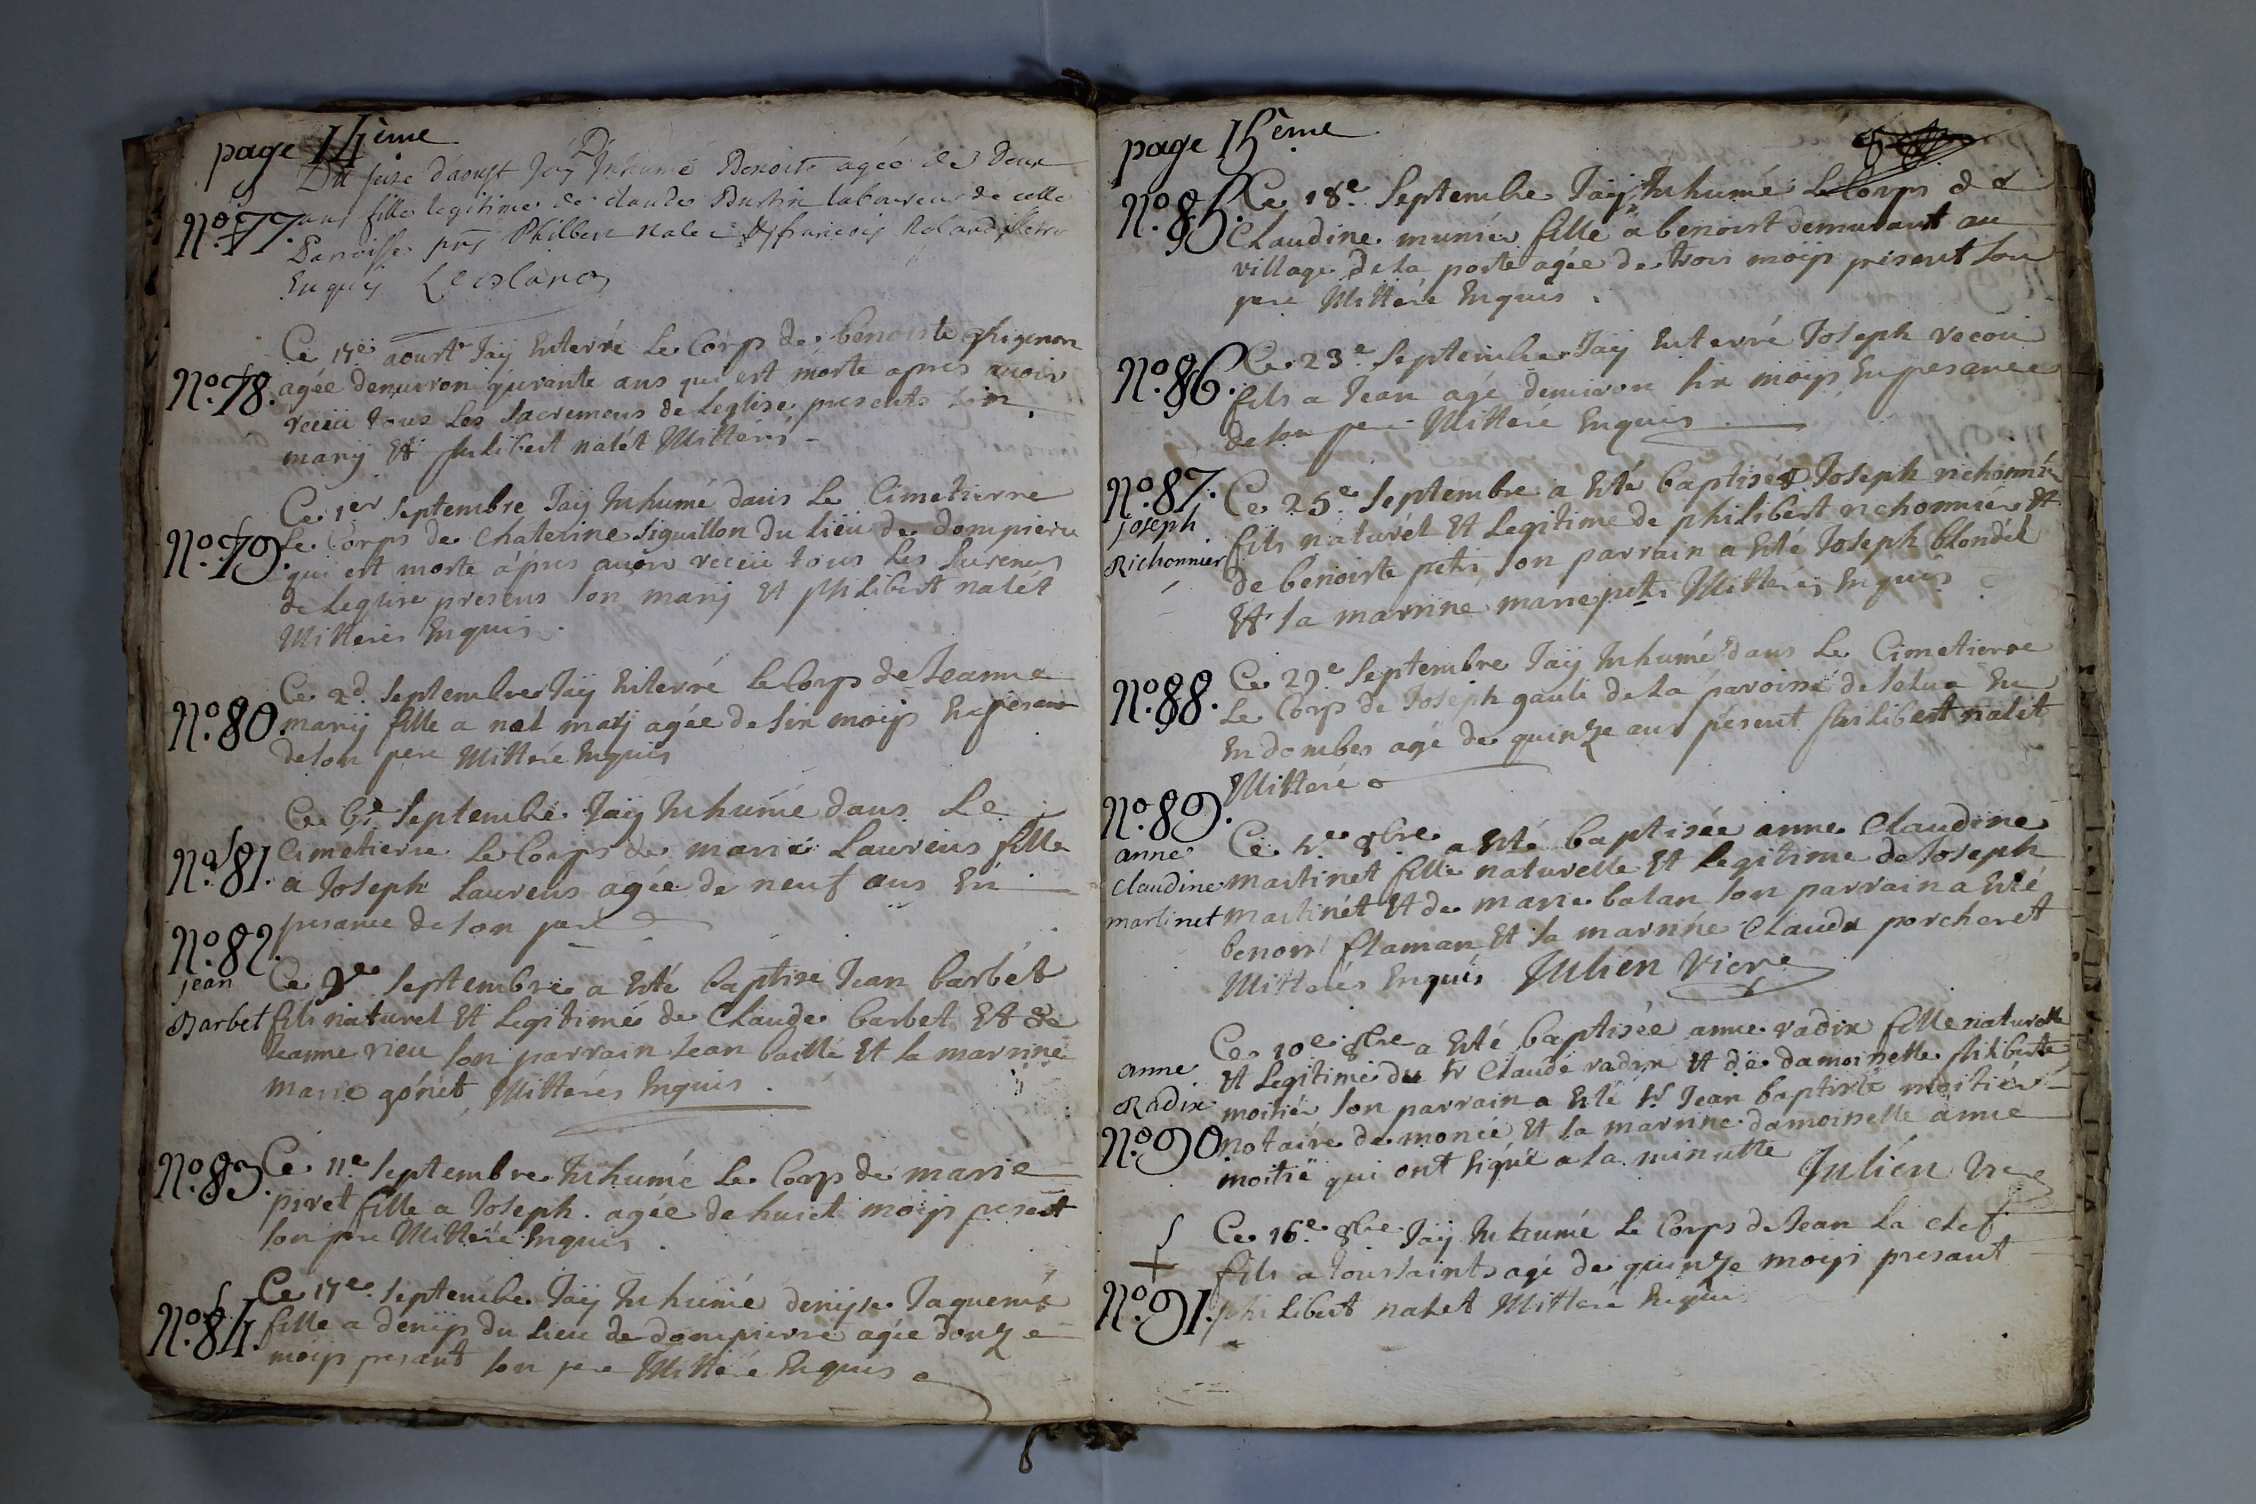 page 14ème
Du seize d'aoust J'ay Inhumé Benoite agée de Deux
No. 77. ans fille legitime de claude Bustin laboureur de cette
Paroisse pnts Philbert Nalet et francois Roland illetre
Enquis Leblanc
Ce 17e aoust Jaÿ Enterré Le Corps de benoiste
No. 78. agée denuiron qurante ans qui est morte apres auoir
receu tous Les sacremens de Leglise presents son
marÿ Et philibert nalét Mitterés
Ce 1er septembre Jaÿ Inhumé dans Le Cimetierre
No. 79. Le Corps de Chaterine siguillon du Lieu de dompierre
qui est morte áprés auoir receu tous Les
de Leglise presens son marÿ Et philibert nalét
Mitterés Enquis
Ce 2d. septembre Jaÿ Enterré Le Corps de Jeanne
No. 80. marÿ fille a noel marÿ agée de six moÿs En presence
de son pere Mitteré Enquis
Ce septembre Jaÿ Inhumé dans Le
No. 81. Cimetierre Le Corps de marie Laurens fille
a Joseph Laurens agée de neuf ans En
presence de son pere
No. 82.
jean Ce septembre a Esté baptise Jean barbét
Barbet fils naturel Et Legitimé de Claude barbet Et de
Jeanne rieu son parrain Jean baillé Et sa marrine
marie gónet Mitterés Enquis.
No. 83. Ce 11e septembre Inhumé Le Corps de marie
piret fille a Joseph. agée de huict moÿs present
son pere Mitteré Enquis
Ce 17e. septembe Jaÿ Inhumé denyse Jaquemé
No. 84. fille a denÿs du Lieu de dompierre agée donze
moÿs presant son pere Mitteré Enquis
page 15ème
Ce 18e. septembre Jaÿ Inhumé Le Corps de
No. 85. Claudine munier fille a benoist demurant au
village de La poste agée de trois moÿs present son
pere Mitteré Enquis.
Ce 23e septembre Jaÿ Enterré Joseph recou
No. 86. fils a Jean agé denviron six moÿs En presance
de son pere Mitteré Enquis
No. 87. Ce 25e. septembre a Esté baptisé Joseph richonnier
joseph fils naturél Et Legitime de philibert richonnier Et
Richonnier de benoiste petit son parrain a Esté Joseph blondél
Et sa marrine marie petit Mitterés Enquis
Ce 29e septembre Jaÿ Inhumé dans Le Cimetierre
No. 88. Le Corps de Joseph gaule de La paroisse de En
En dombes agé de quinze ans présent philibert nalét
Mitteré
No. 89.
anne Ce 8bre a Esté baptisée anne Claudine
claudine martinét fille naturelle Et Legitime de Joseph
martinet martinét Et de marie balan son parrain a Esté
benoist flaman Et sa marrine Claudx porcherét
Mitterés Enquis Julién Vicre
Ce 10e 8bre a Esté baptisée anne radix fille naturelle
anne Et Legitime du sr Claude radix Et de damoiselle philiberte
Radix moitier son parrain a Esté sr Jean baptiste moitier
No. 90 notaire de moncé Et sa marrine damoiselle anne
moitié qui ont signé a La minutte Julién Vicre
Ce 16e. 8bre Jaÿ Inhumé Le Corps de Jean La clef
fils a toussaints agé de quinze moÿs presant
No. 91. philibert nalet Mitteré Enquis